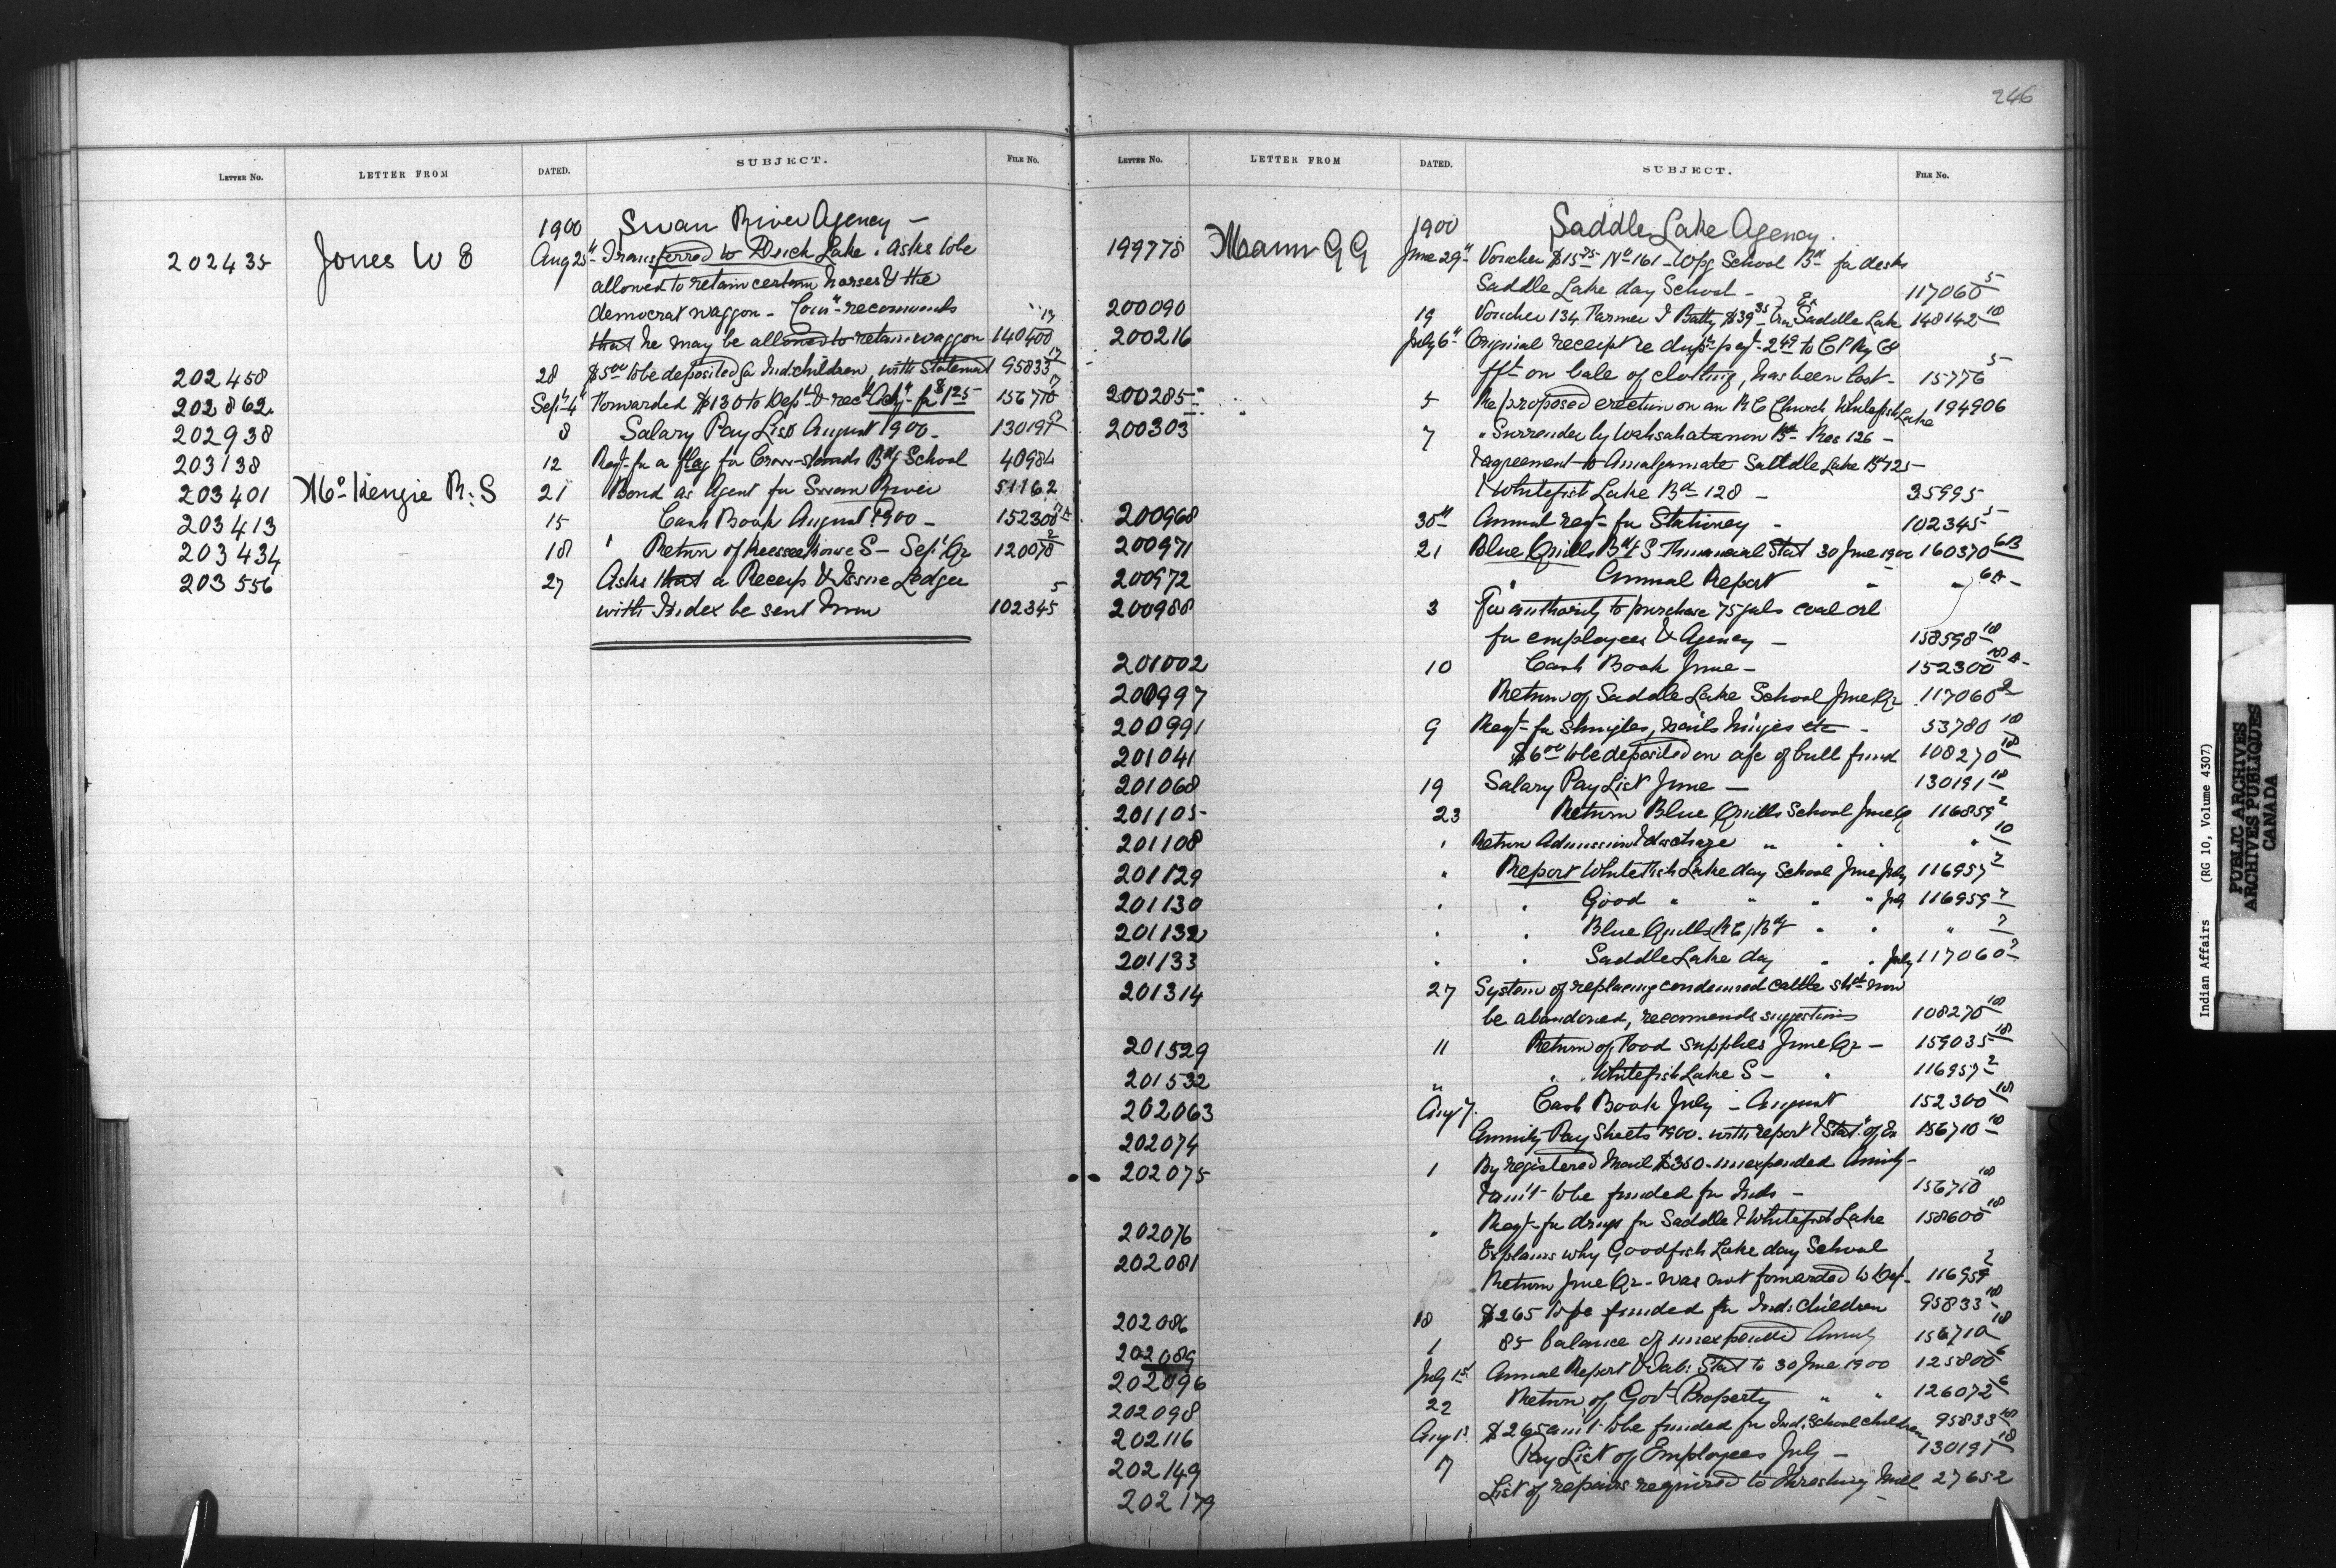 246
LETTER NO. LETTER FROM DATED. SUBJECT. FILE NO.
1900 Swan River Agency —
202435 Jones W E Aug 25" Transferred to Duck Lake. Asks to be
allowed to retain certain horses & the
democrat waggon - Com" recommends
that he may be allowed to retain waggon 140400 17
202458 28 $5 00 to be deposited fr Ind. children, with Statement 95833 17
202862 Sept 4" Forwarded $130 to Dept & rect fr $125 156710 17
202938 8 Salary Pay List August 1900 - 130191
203138 12 Reqt fr a flag for Crow-stands Bdg School 40984
203401 Mc Kenzie R. S 21 Bond as Agent for Swan River 51162
203413 15 Cash Book August 1900 - 152300
203434 18 " Return of Keeseekouse S - Sept Qr 120078 2
203556 27 Asks that a Receip & Issue Ledger
with Index be sent him 102345 5
LETTER NO. LETTER FROM DATED. SUBJECT. FILE NO.
1900 Saddle Lake Agency.
199778 Mann G G June 29" Voucher $15 75 No 161 - Wpg School Bd fr desks
Saddle Lake day School - 117060 5
200090 19 Voucher 134 Farmer J Batty $39 35 Saddle Lake 148142 18
200216 July 6" Original receipt re dup pay 2 49 to C P Ry Co
fft on bale of clothing, has been lost - 15776 5
200285 5 Re proposed erection on an R C Church, Whitefish Lake 194906
200303 7 " Surrender by Wahsahatanow Bd Res 126 -
& agreement to Amalgamate Saddle Lake Bd 125 -
& Whitefish Lake Bd 128 - 35995
200968 30" Annual reqt for Stationey - 102345 5
200971 21 Blue Quills Bdg S - Financial Stat 30 June 1900 160370 6B
200972 " Annual Report " " 6A -
200988 3 For authority to purchase 75 gals coal oil
for employees & Agency - 158598 18
201002 10 Cash Book June - 152300 18 A -
200997 Return of Saddle Lake School June Qr 117060 2
200991 9 Reqt for Shingles, nails hinges etc - 53780 18
201041 $6 00 to be deposited on a/c of bull fund 108270 18
201068 19 Salary Pay List June - 130191 18
201105 23 Return Blue Quills School June Q 116859 2
201108 " Return Admission & discharge " " " " 10
201129 " Report White Fish Lake day School June July 116957 7
201130 " " Good " " " " July 116959 7
201132 " " Blue Quills (R C) Bdg " " " 7
201133 " " Saddle Lake day " " July 117060 7
201314 27 System of replacing condemned cattle shd now
be abandoned, recommends suggestions 108270 18
201529 11 Return of Food supplies June Qr - 159035 18
201532 " " Whitefish Lake S - " 116957 2
202063 Aug 7. Cash Book July - August 152300 18
202074 Annuity Pay Sheets 1900. with report & Stat. of Ex 156710 18
202075 1 By registered Mail $350 - unexpended Annuity -
& am't to be funded for Inds - 156710 18
202076 " Reqt for drugs for Saddle & Whitefish Lake 158600 18
202081 Explains why Goodfish Lake day School
Return June Qr - was not forwarded to Dept 116959 2
202086 18 $265 to be funded for Ind. Children 95833 18
202089 1 85 balance of unexpended Annuity 156710 18
202096 July 1st Annual Report & Tab. Stat to 30 June 1900 125800 6
202098 22 Return of Govt Property " " 126072 6
202116 Aug 1st $265 am't to be funded for Ind. School children 95833 18
202149 7 Pay List of Employees July - 130191 18
202179 List of repairs required to threshing Mill 27652
Indian Affairs (RG 10, Volume 4307)
PUBLIC ARCHIVES
ARCHIVES PUBLIQUES
CANADA